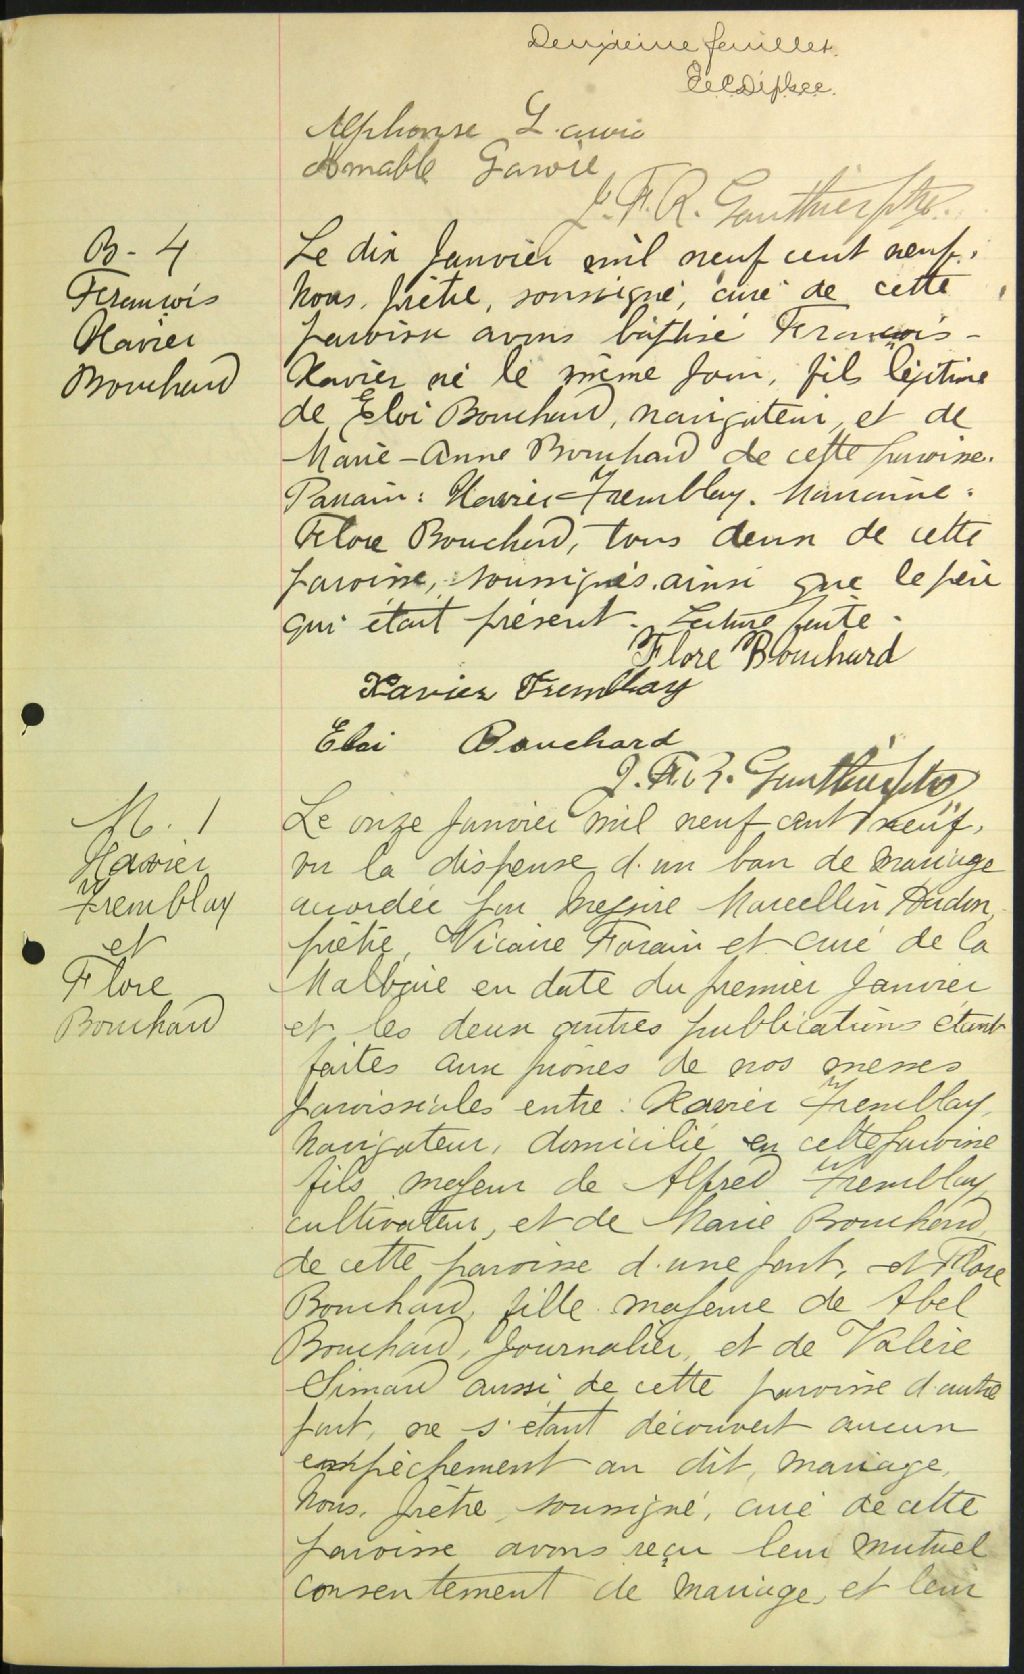 Deuxième feuillet.
Alphonse
Amable
J. F. R. Gauthier ptre.
B- 4
François
Xavier
Bouchard
Le dix Janvier mil neuf cent neuf,
Nous, prêtre, soussigné, curé de cette
paroisse avons baptisé François-
Xavier né le même jour, fils légitime
de Eloi Bouchard, navigateur, et de
Marie-Anne Bouchard de cette paroisse.
Parrain: Xavier Tremblay. Marraine:
Flore Bouchard, tous deux de cette
paroisse, soussignés ainsi que le père
qui était présent. Lecture faite.
Flore Bouchard
Xavier Tremblay
Eloi Bouchard
J. F. R. Gauthier ptre
M. 1
Xavier
Tremblay
et
Flore
Bouchard
Le onze Janvier mil neuf cent neuf,
vu la dispense d'un ban de mariage
accordée par Messire Marcellin Hudon,
prêtre, Vicaire Forain et curé de la
Malbaie en date du premier Janvier
et les deux autres publications étant
faites aux prônes de nos messes
paroissiales entre: Xavier Tremblay,
Navigateur, domicilié en cette paroisse
fils majeur de Alfred Tremblay
cultivateur, et de Marie Bouchard
de cette paroisse d'une part, et Flore
Bouchard, fille majeure de Abel
Bouchard, Journalier, et de Valérie
Simard aussi de cette paroisse d'autre
part, ne s'étant découvert aucun
empêchement au dit mariage,
Nous, prêtre, soussigné, curé de cette
paroisse avons reçu leur mutuel
consentement de mariage, et leur